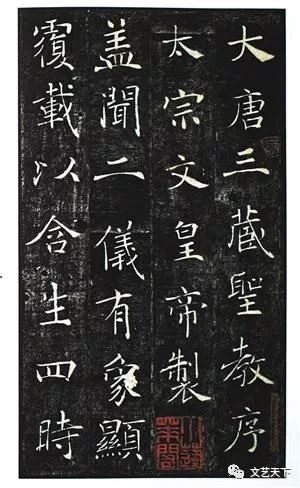 大唐三藏聖教序
太宗文皇帝製
盖聞二儀有象顯
覆載以含生四時
文艺天下